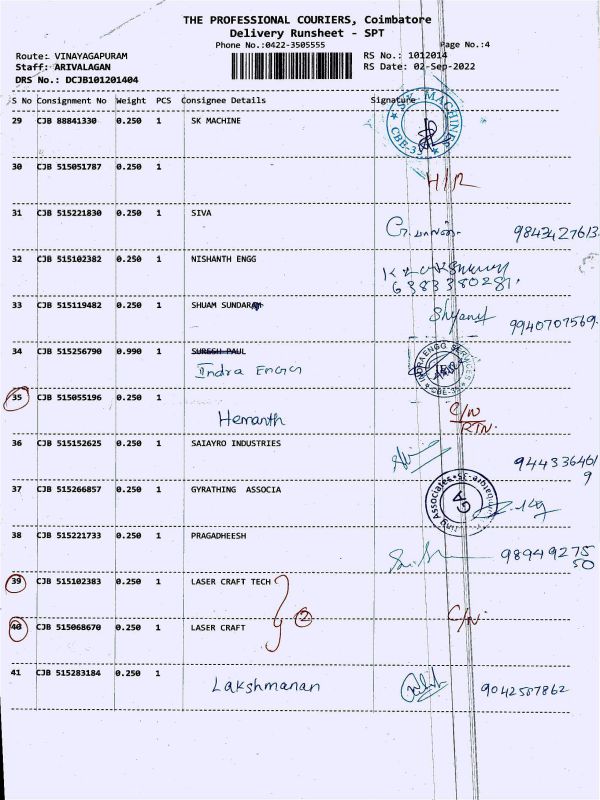 THE PROFESSIONAL COURIERS, Coimbatore
Delivery Runsheet - SPT
Phone No.:0422-3505555
Page No.:4
Route: VINAYAGAPURAM
RS No.: 1012014
Staff: ARIVALAGAN
RS Date: 02-Sep-2022
DRS No.: DCJB101201404
S No Consignment No Weight PCS Consignee Details Signature
29 CJB 88841330 0.250 1 SK MACHINE
SK MACHINES
30 CJB 515051787 0.250 1
H/R
31 CJB 515221830 0.250 1 SIVA
9843427613
32 CJB 515102382 0.250 1 NISHANTH ENGG
6383380281
33 CJB 515119482 0.250 1 SHUAM SUNDARAM
Shyam
9940707569
34 CJB 515256790 0.990 1 SURESH PAUL
Indra Engg
INDRA ENGG SERVICES
35 CJB 515055196 0.250 1
Hemanth
C/N
RTN.
36 CJB 515152625 0.250 1 SAIAYRO INDUSTRIES
944336461
9
37 CJB 515266857 0.250 1 GYRATHING ASSOCIA
38 CJB 515221733 0.250 1 PRAGADHEESH
98949275
50
39 CJB 515102383 0.250 1 LASER CRAFT TECH
2
40 CJB 515068670 0.250 1 LASER CRAFT
C/N.
41 CJB 515283184 0.250 1
Lakshmanan
9042587862